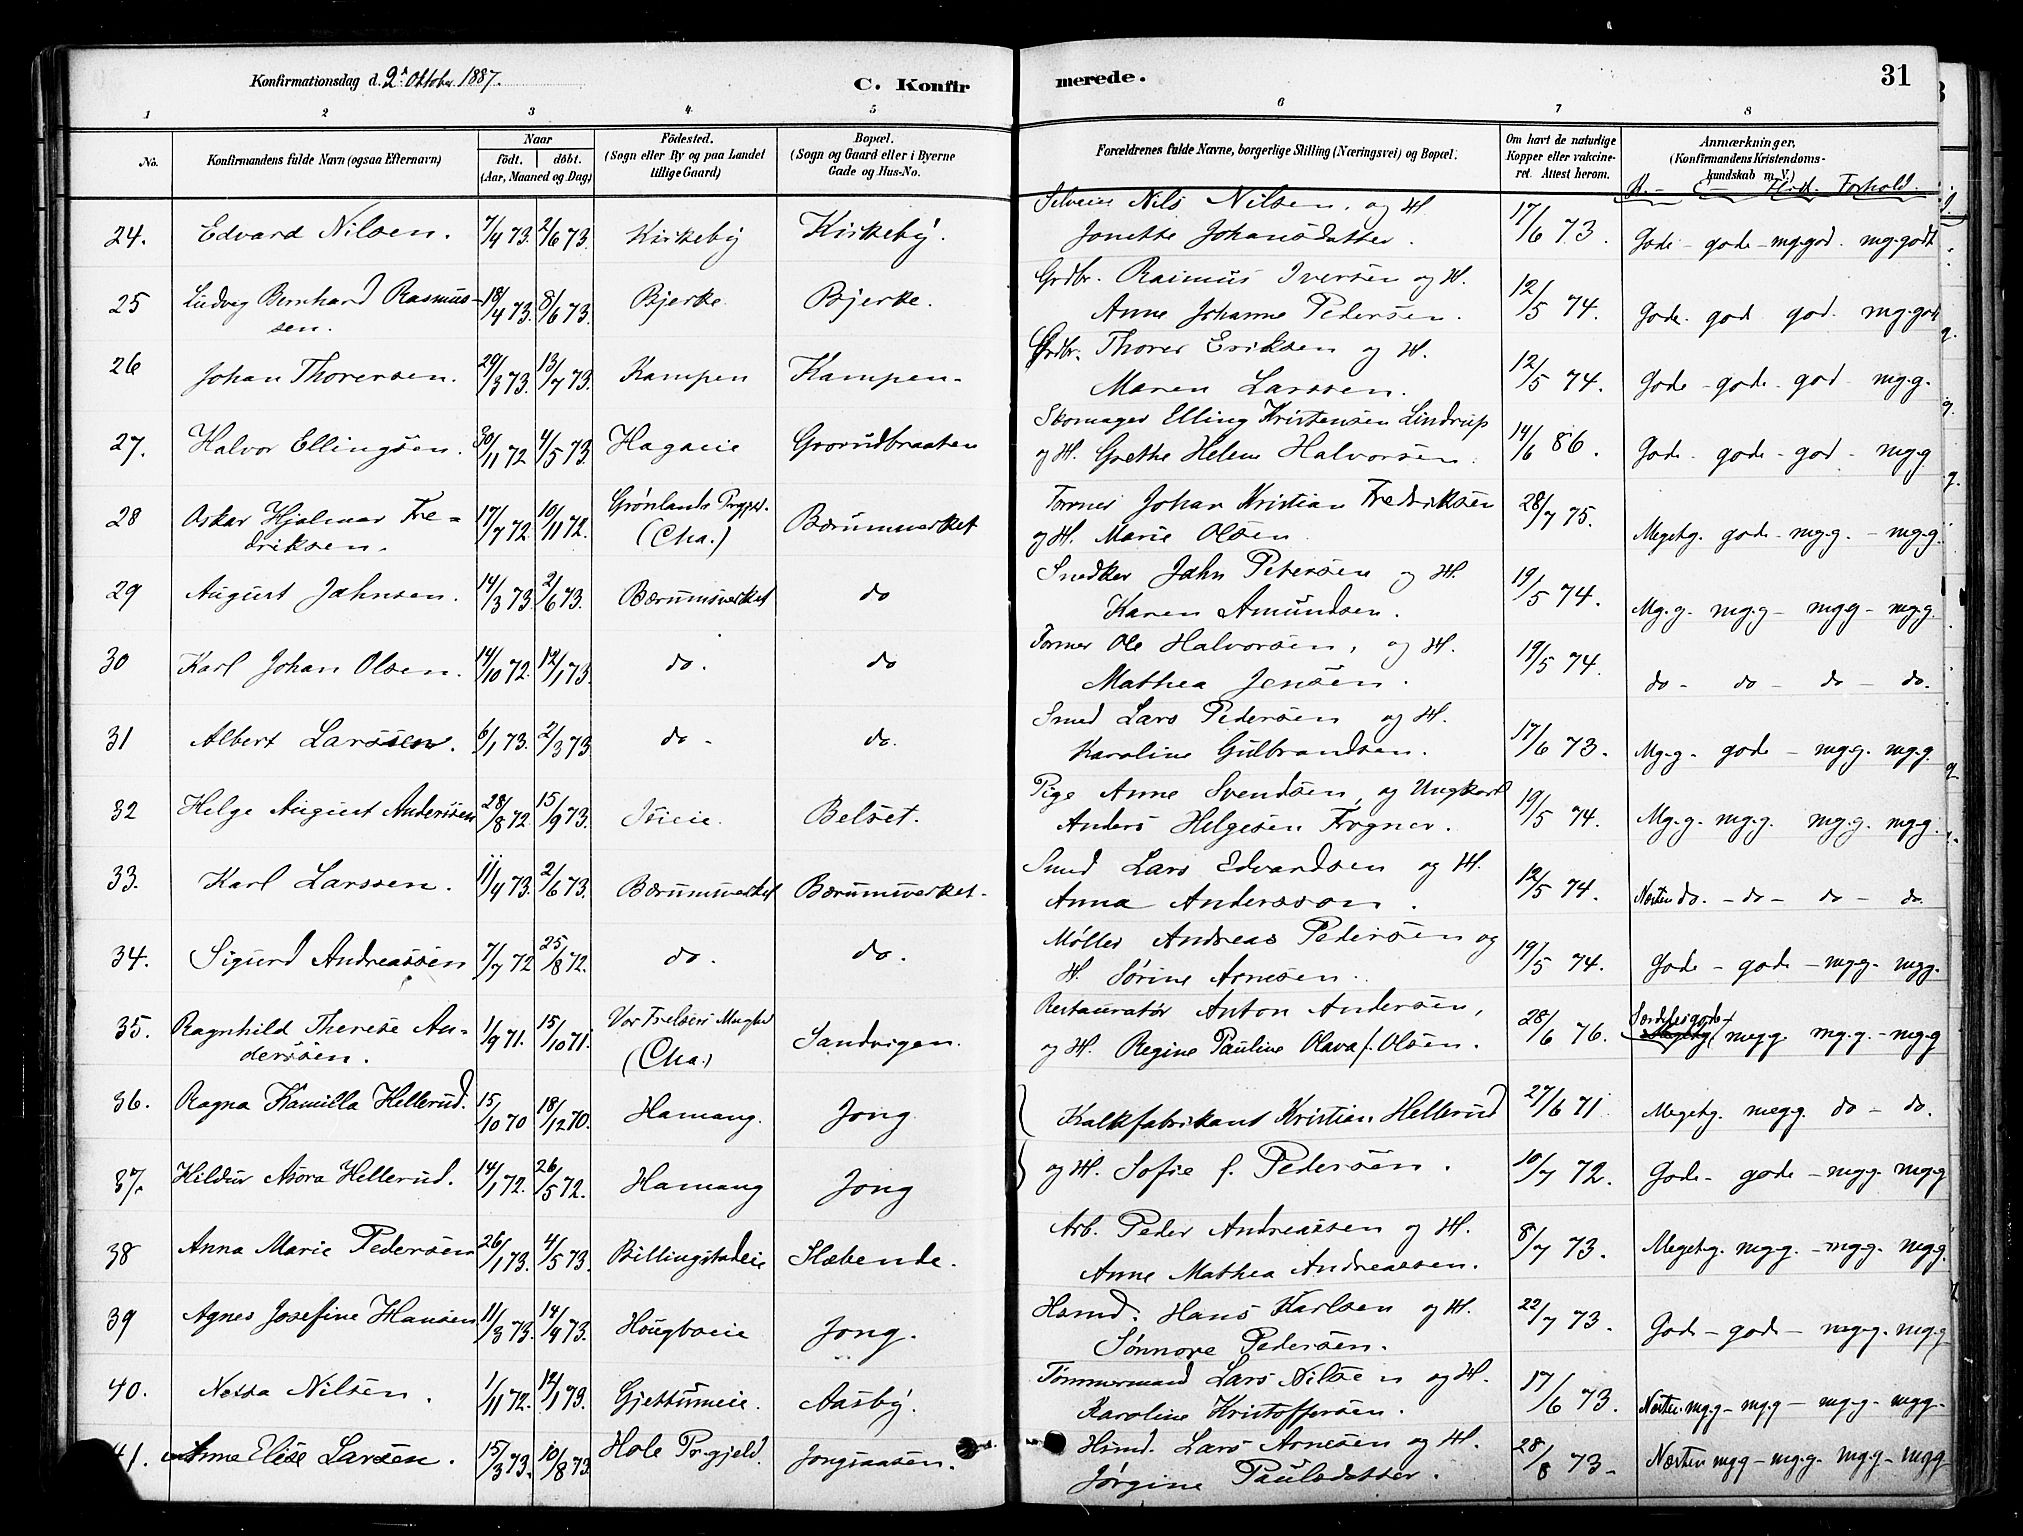 Konfirmationsdag d. 2den Oktober 1887.
C. Konfirmerede.
31
1 2 3 4 5 6 7 8
No.
Konfirmandens fulde Navn (ogsaa Efternavn)
Naar
födt. döbt.
(Aar, Maaned og Dag)
Födested.
(Sogn eller By og paa Landet
tillige Gaard)
Bopæl.
(Sogn og Gaard eller i Byerne
Gade og Hus-No.
Forældrenes fulde Navne, borgerlige Stilling (Næringsvei) og Bopæl.
Om havt de naturlige
Kopper eller vakcine-
ret. Attest herom.
Anmærkninger,
(Konfirmandens Kristendoms-
kundskab m. V.)
Flid. Forhold.
24. Edvard Nilsen. 7/4 73. 2/6 73. Kirkeby Kirkeby. Nils Nilsen, og H. 17/6 73. Gode - gode - mg.god. mg.godt
Jonette Johansdatter.
25 Ludvig Bernhard Rasmus- 18/4 73. 8/6 73. Bjerke Bjerke. Grdbr. Rasmus Iversen og H. 12/5 74. Gode. god god. mg.godt
sen. Anne Johanne Pedersen.
26 Johan Thoresen. 29/3 73. 13/7 73. Kampen Kampen. Grdbr. Thorer Eriksen og H. 12/5 74. Gode - gode - god - mg.g.
Maren Larssen.
27. Halvor Ellingsen. 30/11 72 4/5 73. Hageeie Grorudbraaten Skomager Elling Kristensen Lindrup 14/6 86. Gode - gode - god - mg.g
og H. Grethe Helene Halvorsen.
28 Oskar Hjalmar Fre- 17/7 72. 10/11 72. Grønlands Prgjld. Bærumsverket Former Johan Kristian Fredriksen 28/7 75. Megetg. gode - mg.g. - mg.g.
driksen. (Cha.) og H. Marie Olsen.
29 August Jahnsen. 14/3 73. 2/6 73. Bærumsverket do Snedker Jahn Petersen og H. 19/5 74. Mg.g. mg.g - mg.g - mg.g.
Karen Amundsen.
30 Karl Johan Olsen. 14/10 72. 12/1 73. do. do Former Ole Halvorsen, og H. 19/5 74. do - do - do - do.
Mathea Jensen.
31 Albert Larssen. 6/1 73. 2/3 73 do - do. Smed Lars Pedersen og H. 17/6 73. Mg.g. gode - mg.g. mg.g.
Karoline Gulbrandsen.
32 Helge August Andersen 28/8 72. 15/9 73. Belset. Pige Anne Svendsen og Ungkarl 19/5 74. Mg.g. mg.g. mg.g. mg.g.
Anders Helgesen Fogner.
33. Karl Larssen. 11/4 73. 2/6 73. Bærumsverket Bærumsverket. Smed Lars Edvardsen og H. 12/5 74. Næsten do. - do - do - do.
Anna Andersson.
34. Sigurd Andreassen 7/7 72 25/8 72. do. do. Møller Andreas Pedersen og 19/5 74. Gode - gode - mg.g. mg.g.
H. Sørine Arnesen.
35. Ragnhild Therese An- 1/9 71. 15/10 71. Vor Frelsers Mnghd Sandvigen. Restauratør Anton Andersen, 28/6 76. Særdeles gode mg.g. mg.g. - mg.g
dersen. (Cha.) og H. Regine Pauline Olava f. Olsen.
36. Ragna Kamilla Hellerud. 15/10 70 18/12 70. Hamang. Jong. Kalkfabrikant Kristian Hellerud 27/6 71. Megetg. meg.g. do - do.
37. Hildur Asora Hellerud. 14/1 72. 26/5 72. Hamang Jong og H. Sofie f. Pedersen. 10/7 72. Gode - gode - mg.g. mg.g
38 Anna Marie Pedersen 26/1 73. 4/5 73. Billingstadeie Slæbende. Arb. Peder Andreassen og H. 8/7 73. Megetg. mg.g. - mg.g. mg.g.
Anne Mathea Andreassen.
39 Agnes Josefine Hansen 11/3 73. 14/9 73. Hougboeie Jong. Hsmd. Hans Karlsen og H. 22/7 73. Gode - gode - mg.g. mg.g
Sønnove Pedersen.
40. Nessa Nilsen. 1/11 72. 12/1 73. Gjettumeie. Aasby. Tømmermand Lars Nilsen og H. 17/6 73. Næsten mg.g - mg.g - mg.g. mg.g.
Karoline Kristoffersen.
41. Anne Elise Larsen. 15/3 73. 10/8 73 Hole Prgjeld. Jongsaasen. Hsmd. Lars Arnesen og H. 28/8 73. Næsten mg.g - mg.g. mg.g - mg.g
Jørgine Paulsdatter.